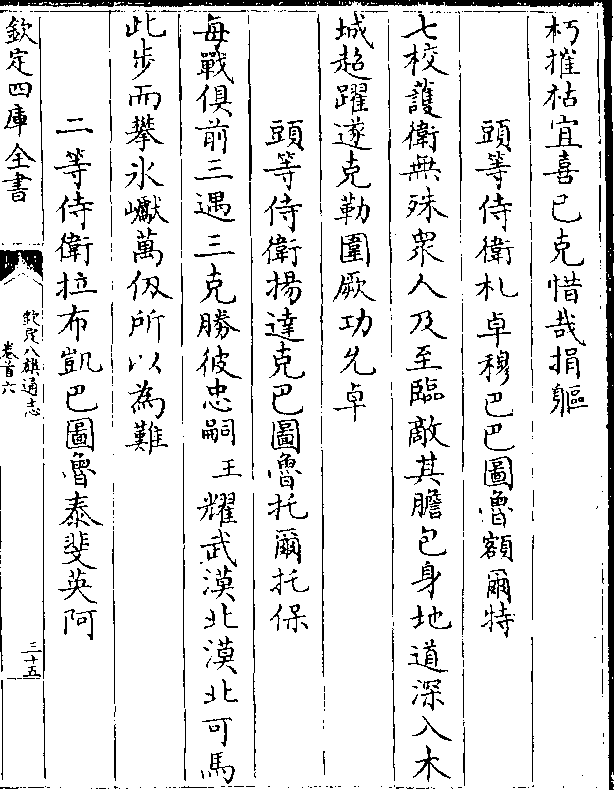 朽摧枯宜喜已克惜哉捐軀
頭等侍衛札卓穆巴巴圖魯額爾特
七校護衛無殊衆人及至臨敵其膽包身地道深入木
城超躍遂克勒圍厥功尤卓
頭等侍衛揚達克巴圖魯托爾托保
每戰俱前三遇三克勝彼忠嗣王耀武漠北漠北可馬
此步而攀氷巘萬仭所以為難
二等侍衛拉布凱巴圖魯泰斐英阿
欽定四庫全書
欽定八旗通志
卷首六
三十五